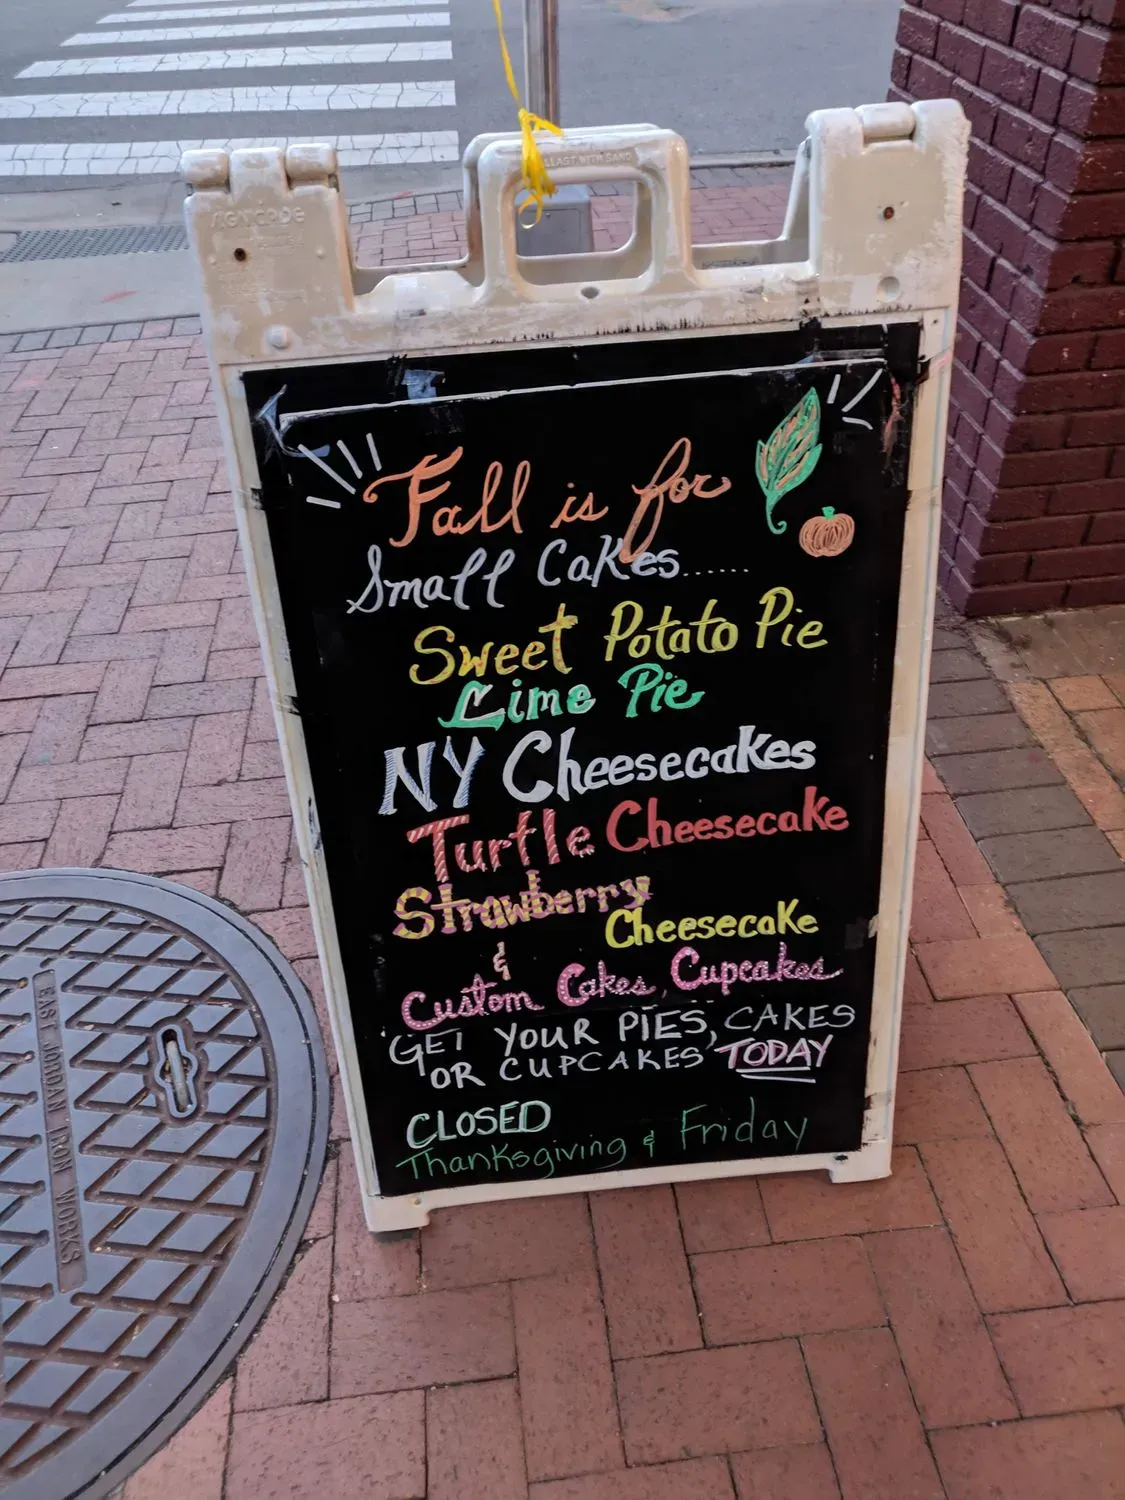 SIGNICADE
BALLAST WITH SAND
Fall is for
Small Cakes......
Sweet Potato Pie
Lime Pie
NY Cheesecakes
Turtle Cheesecake
Strawberry
Cheesecake
&
Custom Cakes, Cupcakes
GET YOUR PIES, CAKES
OR CUPCAKES TODAY
CLOSED
Thanksgiving & Friday
EAST JORDAN IRON WORKS